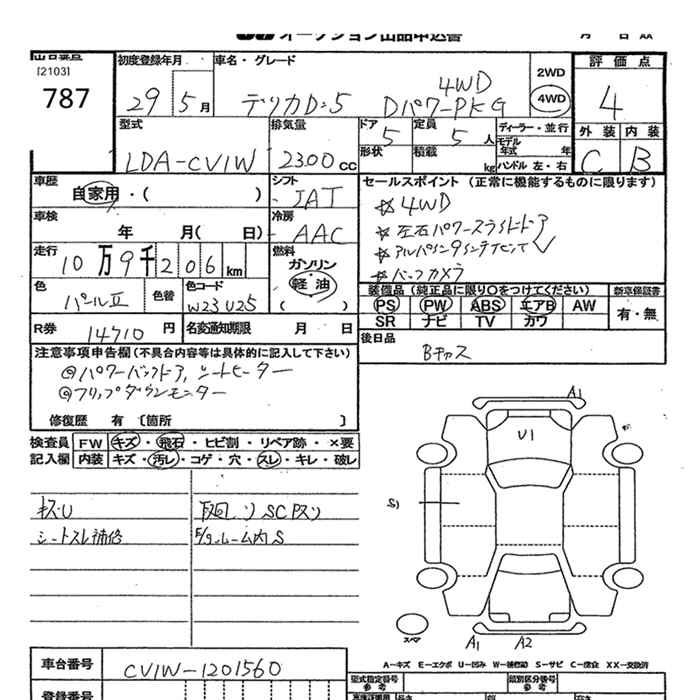 オークション出品申込書
[2103]
787
初度登録年月 車名・グレード 2WD 評価点
29年 5月 デリカD:5 Dパワ-PKG 4WD 4WD 4
型式 排気量 ドア 5 定員 5人 ディーラー・並行 外装 内装
LDA-CV1W 2300cc 形状 積載 kg モデル年式 年 ハンドル 左・右 C B
車歴 自家用・( ) シフト JAT
セールスポイント (正常に機能するものに限ります)
☆4WD
☆左右パワースライドドア
☆アルパインナビ
☆バックカメラ
車検 年 月( 日) 冷房 AAC
走行 10万9千206km 燃料 ガソリン 軽油( )
色 パールII 色替 色コード W23 U25
装備品 (純正品に限り○をつけてください) 新車保証書
PS PW ABS エアB AW 有・無
SR ナビ TV カワ
R券 14710円 名変通知期限 月 日
後日品 Bキャス
注意事項申告欄(不具合内容等は具体的に記入して下さい)
◎パワーバックドア,シートヒーター
◎フリップダウンモニター
修復歴 有 〔箇所 〕
検査員 FW キズ・飛石・ヒビ割・リペア跡・×要
記入欄 内装 キズ・汚レ・コゲ・穴・スレ・キレ・破レ
キズU
シートスレ補修
下廻り SC Pスリ
ルーム内S
A1
U1
S1
スペア
A1 A2
A-キズ E-エクボ U-凹み W-補修跡 S-サビ C-腐食 XX-交換済
車台番号 CV1W-1201560
型式指定番号 参考
類別区分番号 参考
登録番号
長さ